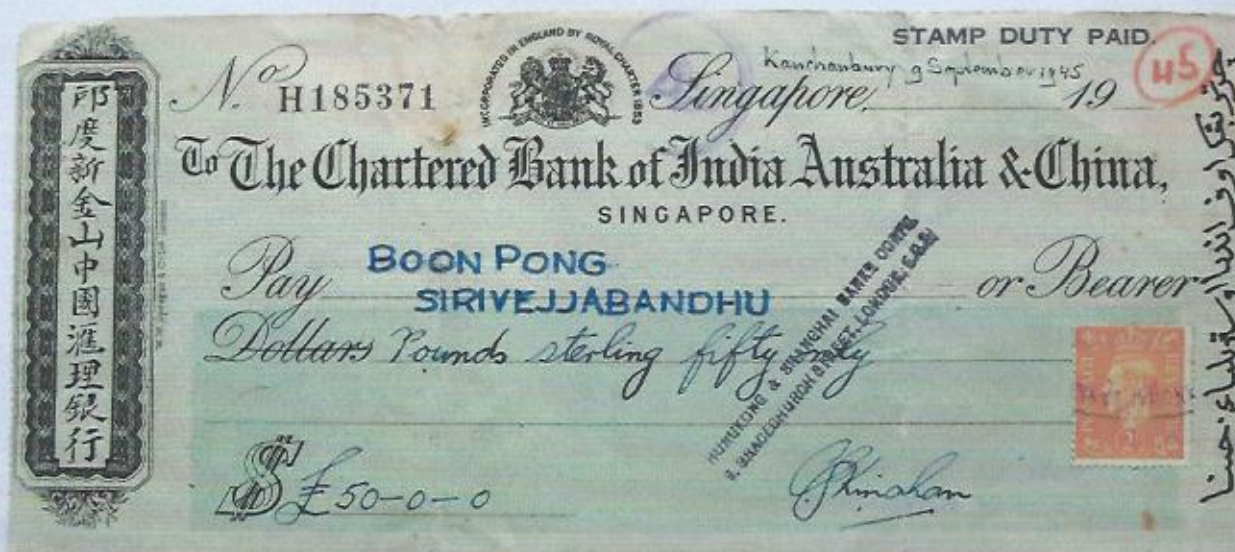 STAMP DUTY PAID.
45
INCORPORATED IN ENGLAND BY ROYAL CHARTER 1853
No H185371
Kanchanbury 9 September 1945
Singapore, 19
印度新金山中國滙理銀行
To The Chartered Bank of India Australia & China,
SINGAPORE.
Pay BOON PONG
SIRIVEJJABANDHU
or Bearer
Dollars Pounds sterling fifty only
HONGKONG & SHANGHAI BANKING CORPN.
9, GRACECHURCH STREET, LONDON, E.C.3
$ £50-0-0